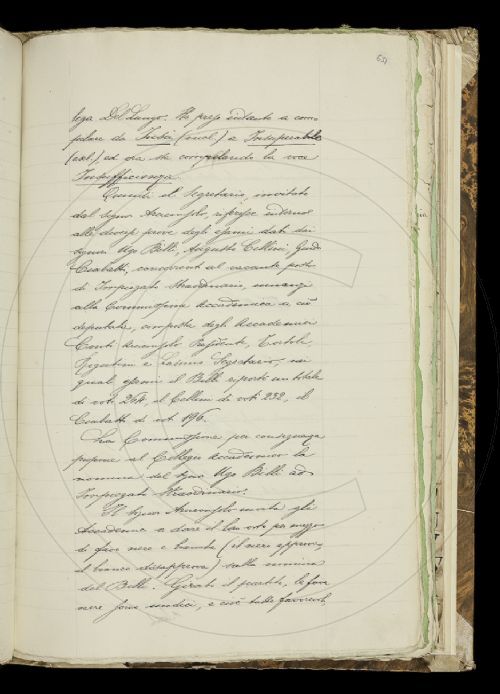 631
lega Del Lungo. Ha preso intanto a com
pilare da Insi (incl.) a Insuperabile
(escl.) ed ora sta compilando la voce
Insufficienza.
Quindi il Segretario, invitato
dal signor Arciconsolo, riferisce intorno
alle diverse prove degli esami dati dai
signori Ugo Billi, Augusto Cellini, Guido
concorrenti al vacante posto
di Impiegato Straordinario, innanzi
alla Commissione Accademica a ciò
deputata, composta degli Accademici
Conti Arciconsolo Presidente, Tortoli,
Rigutini e Segretario, nei
quali esami il Billi riportò un totale
di voti 264, il Cellini di voti 232, il
di voti 196.
La Commissione per conseguenza
propone al Collegio Accademico la
nomina del signor Ugo Billi ad
Impiegato Straordinario.
Il signor Arciconsolo invita gli
Accademici a dare il loro voto per mezzo
di fave nere e bianche (il nero approva,
il bianco disapprova) sulla nomina
del Billi. Girato il partito, le fave
nere sono undici, e cioè tutte favorevoli.